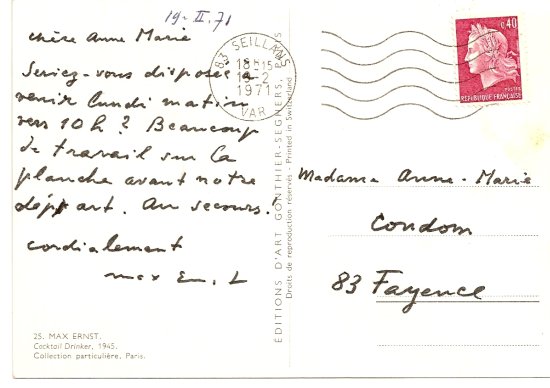 19-II.71
chère Anne Marie
Seriez-vous disposée à
venir Lundi matin
vers 10h? Beaucoup
de travail sur la
planche avant notre
départ. Au secours.
cordialement
max Ernst
25. MAX ERNST.
Cocktail Drinker, 1945.
Collection particulière, Paris.
ÉDITIONS D'ART GONTHIER-SEGHERS, PARIS
Droits de reproduction réservés - Printed in Switzerland
83 SEILLANS
18H15
19-2
1971
VAR
0,40
POSTES
REPUBLIQUE FRANÇAISE
Madame Anne-Marie
Condom
83 Fayence